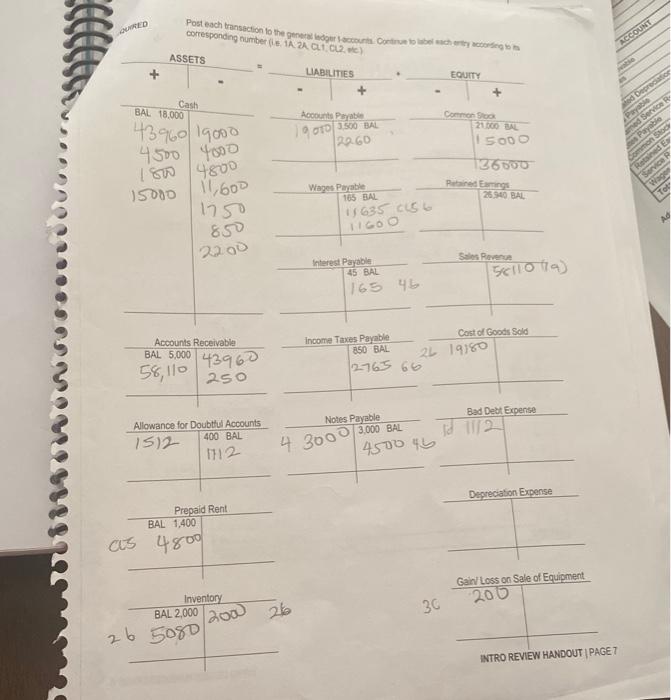 QUIRED
Post each transaction to the general ledger t-accounts. Continue to label each entry according to its
corresponding number (i.e. 1A, 2A, CL1, CL2, etc.)
ASSETS = LIABILITIES + EQUITY
+ - - + - +
Cash
BAL 18,000
43960 19000
4500 4000
1800 4800
15000 11,600
1750
850
2200
Accounts Payable
19000 3,500 BAL
2260
Common Stock
21,000 BAL
15000
36000
Wages Payable
165 BAL
11635 CLS 6
11600
Retained Earnings
26,940 BAL
Interest Payable
45 BAL
165 4b
Sales Revenue
58110 (1a)
Accounts Receivable
BAL 5,000 43960
58,110 250
Income Taxes Payable
850 BAL
2765 6b
Cost of Goods Sold
2b 19180
Allowance for Doubtful Accounts
1512 400 BAL
1112
Notes Payable
4 3000 3,000 BAL
4500 4b
Bad Debt Expense
1d 1112
Prepaid Rent
BAL 1,400
CLS 4800
Depreciation Expense
Inventory
BAL 2,000 200 2b
2b 5080
Gain/ Loss on Sale of Equipment
3C 200
INTRO REVIEW HANDOUT | PAGE 7
ACCOUNT